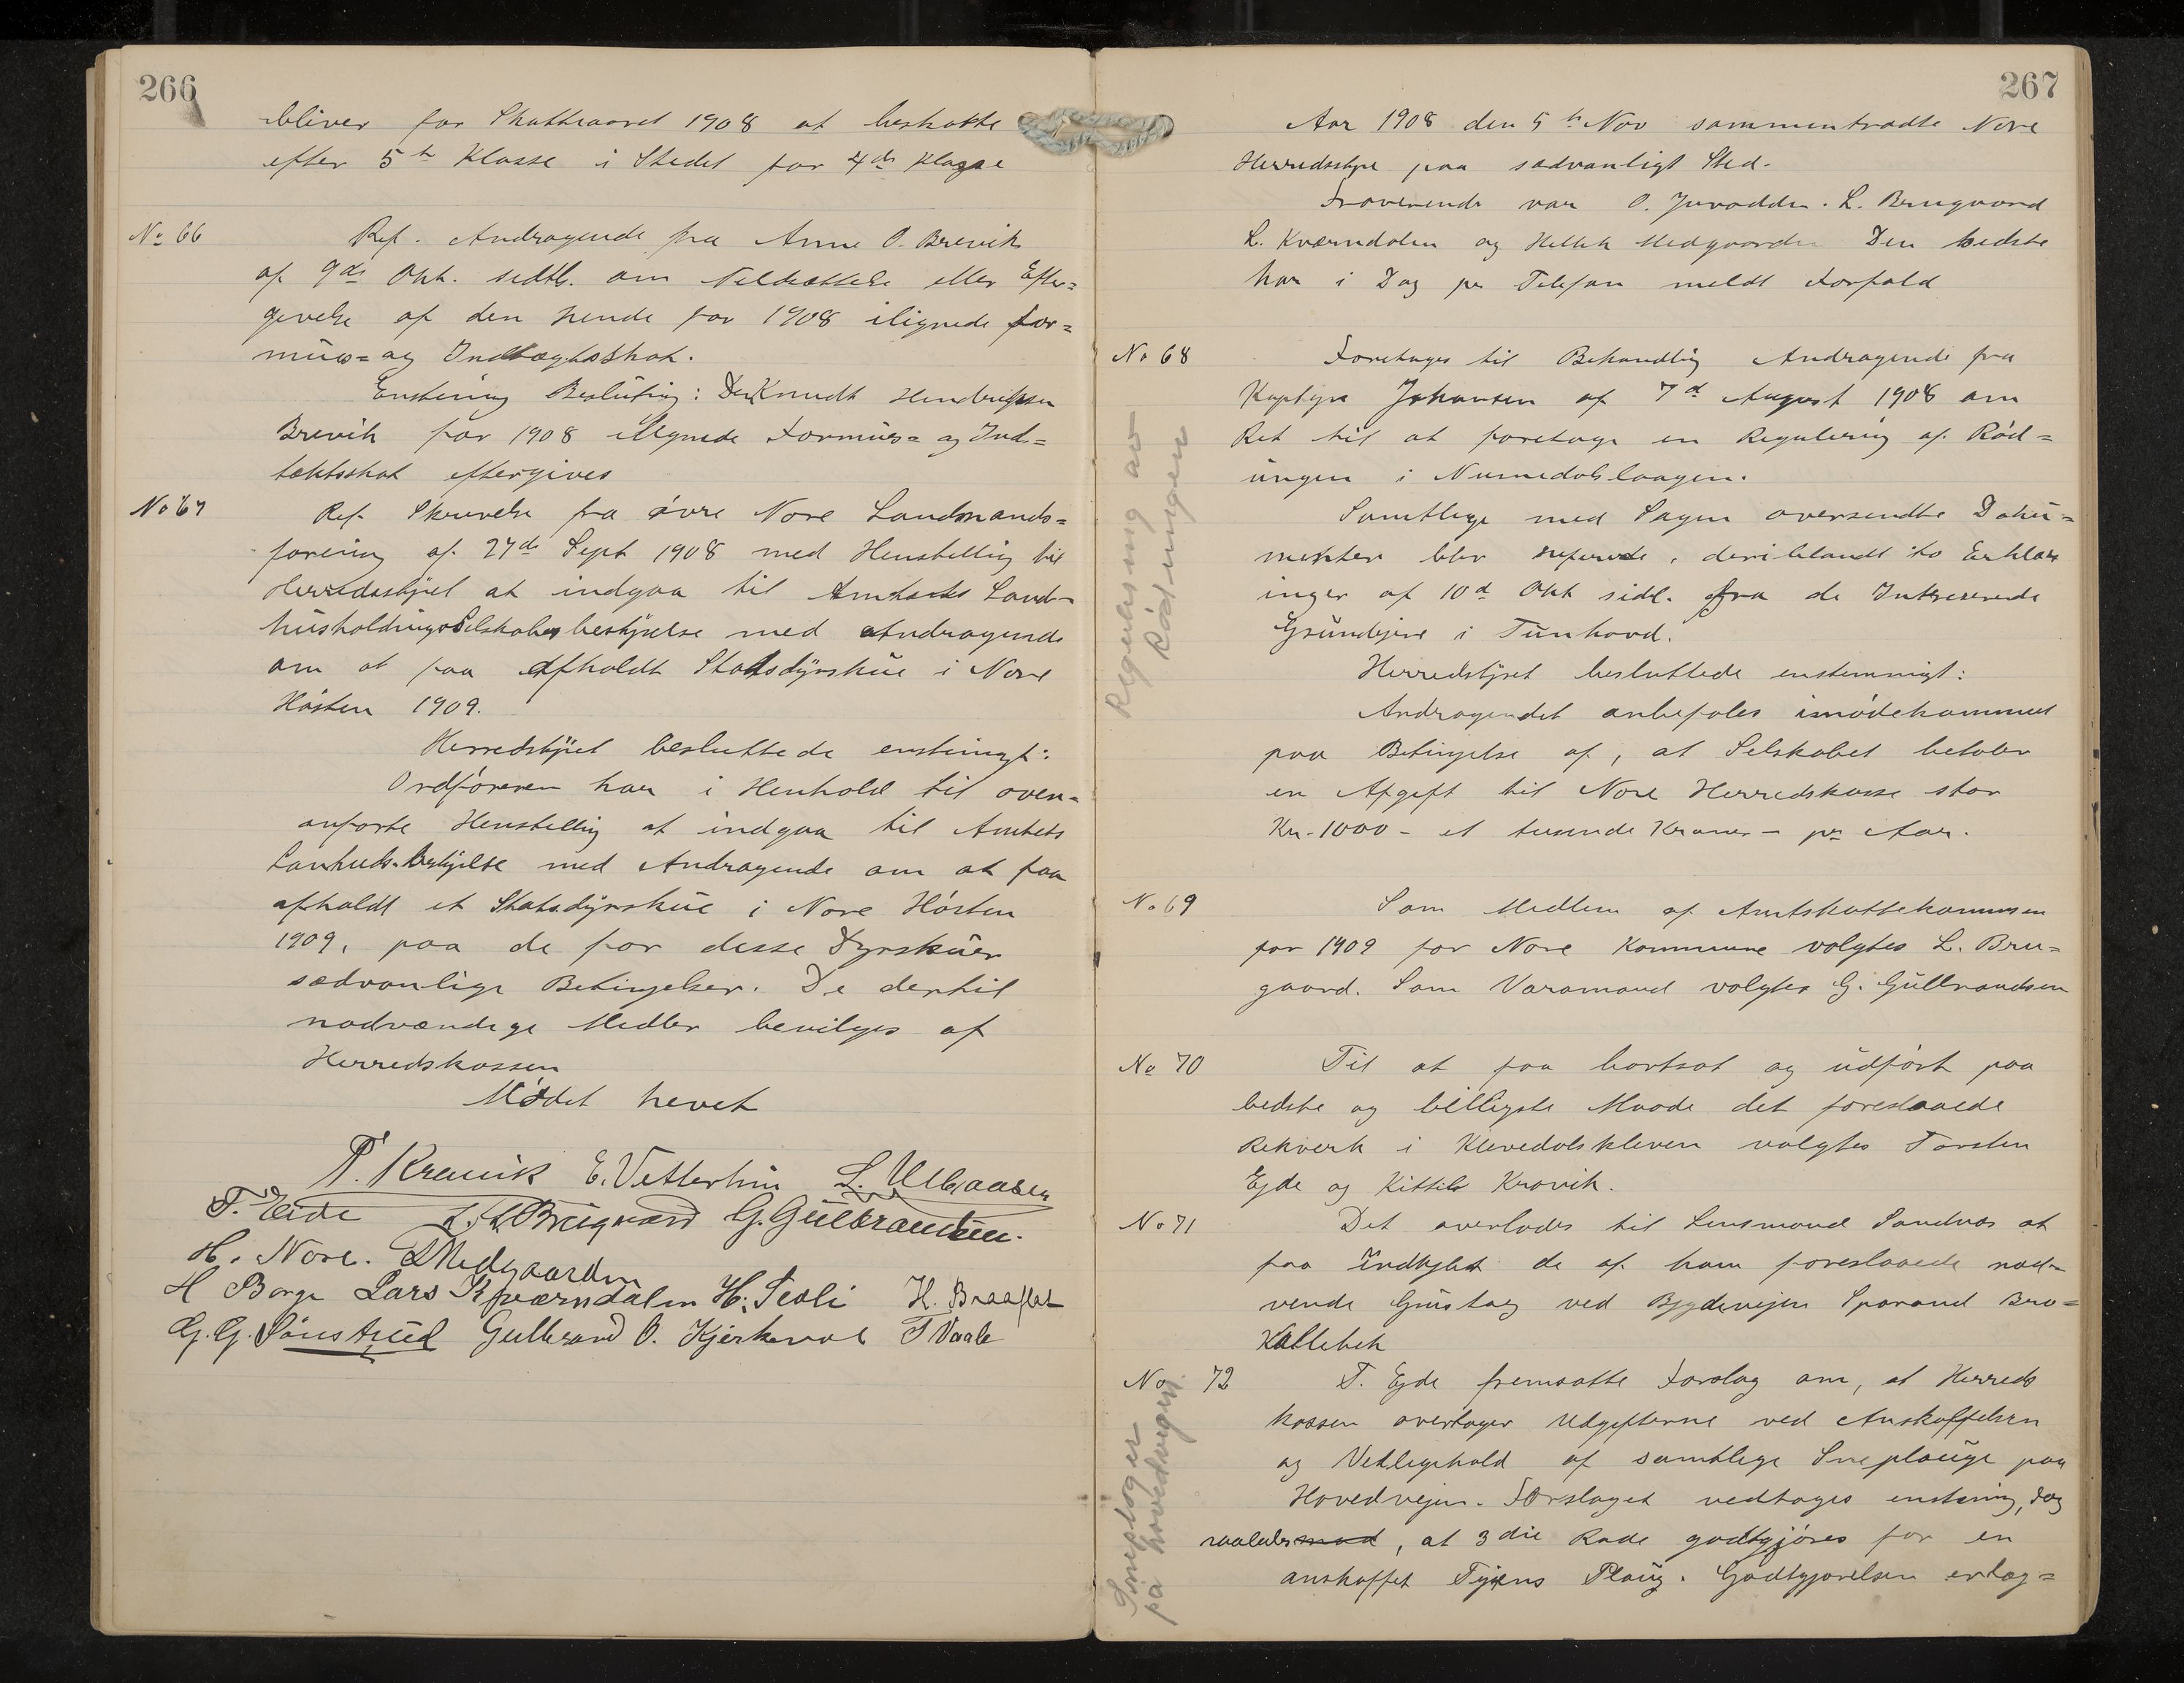 266
bliver for Skatteaaret 1908 at beskatte
efter 5te Klasse i Stedet for 4de Klasse
No 66 Ref. Andragende fra Anne O. Brevik
af 9de Okt. sidtl. om Nedsættelse eller Efter=
givelse af den hende for 1908 ilignede For=
mues= og Indtægtsskat.
Enstemig Beslutning: Den Knudt Hendriksen
Brevik for 1908 ilignede Formues= og Ind=
tektsskat eftergives
No 67 Ref. Skrivelse fra øvre Nore Landmands=
forening af 27de Sept 1908 med Henstilling til
Herredsstyret at indgaa til Amtets Land=
husholdningsselskabs bestyrelse med Andragende
om at faa afholdt Statsdyrskue i Nore
Høsten 1909.
Herredstyret besluttede enstemigt:
Ordføreren har i Henhold til oven=
anførte Henstilling at indgaa til Amtets
Lanhuds.bestyrelse med Andragende om at faa
afholdt et Statsdyrskue i Nore Høsten
1909, paa de for disse Dyrskuer
sædvanlige Betingelser. De dertil
nødvændige Midler bevilges af
Herredskassen
Mødet hevet
T. Kravik E. Vetterhus L. Ulbaasen
T. Eide L. L. Bruguard G. Gulbrandsen.
H. Nore. Medgaarden
H Borge Lars Kværndalen H. Seoli H. Braaflat
G. G. Sønsterud Gulbrand O. Kjerkevol T Vaale
267
Aar 1908 den 5te Nov sammentraadte Nore
Herredsstyre paa sædvanligt Sted.
Fraværende var O. Juvodden. L. Brugaard
L. Kværndalen og Hellek Medgaarden Den sidste
har i Dag pr Telefon meldt Forfald
No 68 Foretages til Behandling Andragende fra
Johansen af 7de August 1908 om
Ret til at foretage en Regulering af Rød=
ungen i Numedalslaagen.
Regulering av
Rødungen
Samtlige med Sagen oversendte Doku=
menter blev refererede, deriblandt to Erklær
inger af 10de Okt sidl. fra de Intresserende
Grundejere i Tunhovd.
Herredstyret besluttede enstemmigt:
Andragendet anbefales imødekommet
paa Betingelse af, at Selskabet betaler
en Afgift til Nore Herredskasse stor
Kr. 1000 – et tusende Kroner – pr Aar.
No 69 Som Medlem af Amtskattekommisen
for 1909 for Nore Kommune valgtes L. Bru=
gaard. Som Varamand valgtes G. Gulbrandsen
No 70 Til at faa bortsat og udført paa
bedste og billigste Maade det foreslaaede
Rekverk i Klevedalskleven valgtes Torsten
Ejde og Kittil Kravik.
No 71 Det overlodes til Lensmand Sandnes at
faa indkjøbt de af ham foreslaaede nød=
vende ved Bygdevejen Sporand Bro=
Kallebek
No 72 T. Ejde fremsatte Forslag om, at Herreds
kassen overtager Udgifterne ved Anskaffelsen
og Vedligehold af samtlige Sneplouge paa
Hovedvejen. Forslaget vedtages enstemig, dog
saaledes mod, at 3die Rode godtgjøres for en
anskaffet Plaug. Godtgjørelsen
Sneploger
på hovedvegen.